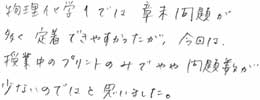 物理化学1では章末問題が
多く定着できやすかったが、今回は、
授業中のプリントのみでやや問題数が
少ないのではと思いました。